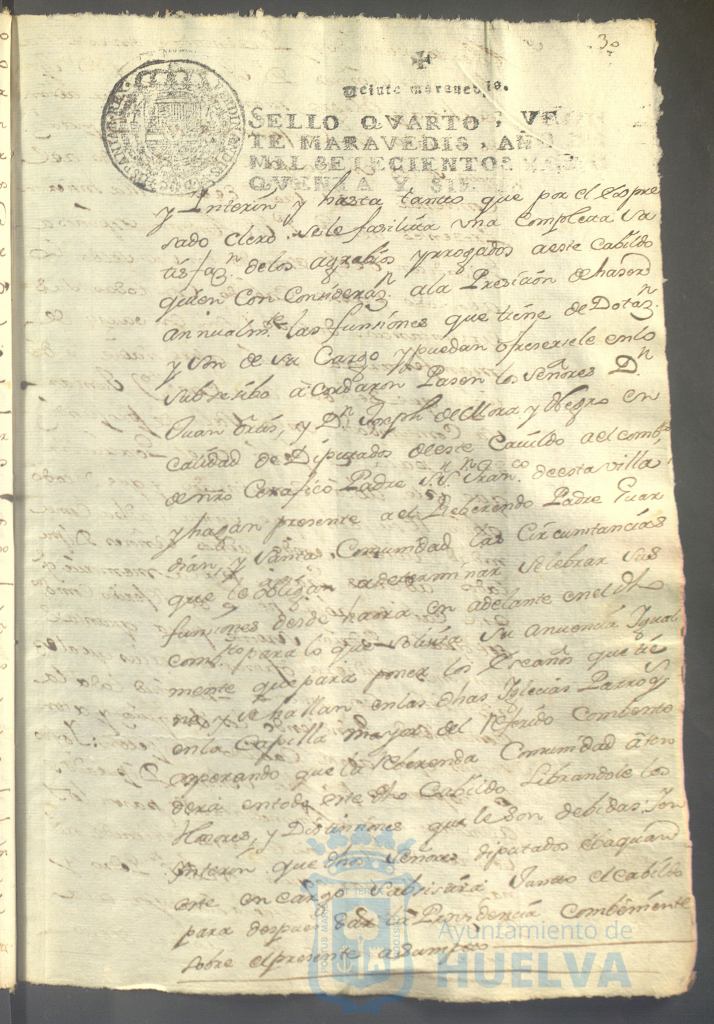 30
Veinte maravedis.
SELLO QVARTO, VEIN
TE MARAVEDIS, AÑO
MIL SETECIENTOS
QVENTA Y SIETE
y Interin y hasta tanto que por el Expre
sado Clero se le fasilita una Completa Sa
tisfaz.n de los agrabios yrrogados a este Cabildo
quien con Consideraz.n a la Presicion de haser
annualm.te las funsiones que tiene de Dotaz.n
y son de su Cargo, y puedan ofresersele en lo
subsesibo acordaron Pasen los Señores D.n
Juan y D.n Joseph de Mora y Negro en
Calidad de Diputados de este Cauildo a el comb.to
de nro Cerafico Padre S.n S.r Fran.co de esta villa
y hagan presente a el Reberendo Padre Guar
dian, y Santa Comunidad las Circunstancias
que le obligan a determinar selebrar sus
funsiones desde haora en adelante en el dho
comb.to para lo que solisita su anuencia Igual
mente que para poner los Escaños que tie
ne y se hallan en las dhas Iglecias Parroq.s
en la Capilla mayor del referido Combento
esperando que la Reberenda Comunidad aten
dera en todo este dho Cabildo Librandole los
Honores, y Distinsiones que le son debidas: Ion
interin que dhos Señores diputados ebaquan
este encargo subsistirá Junto el Cabildo
para despues dar la Providencia Combeniente
sobre el presente asumpto
Ayuntamiento de
HUELVA